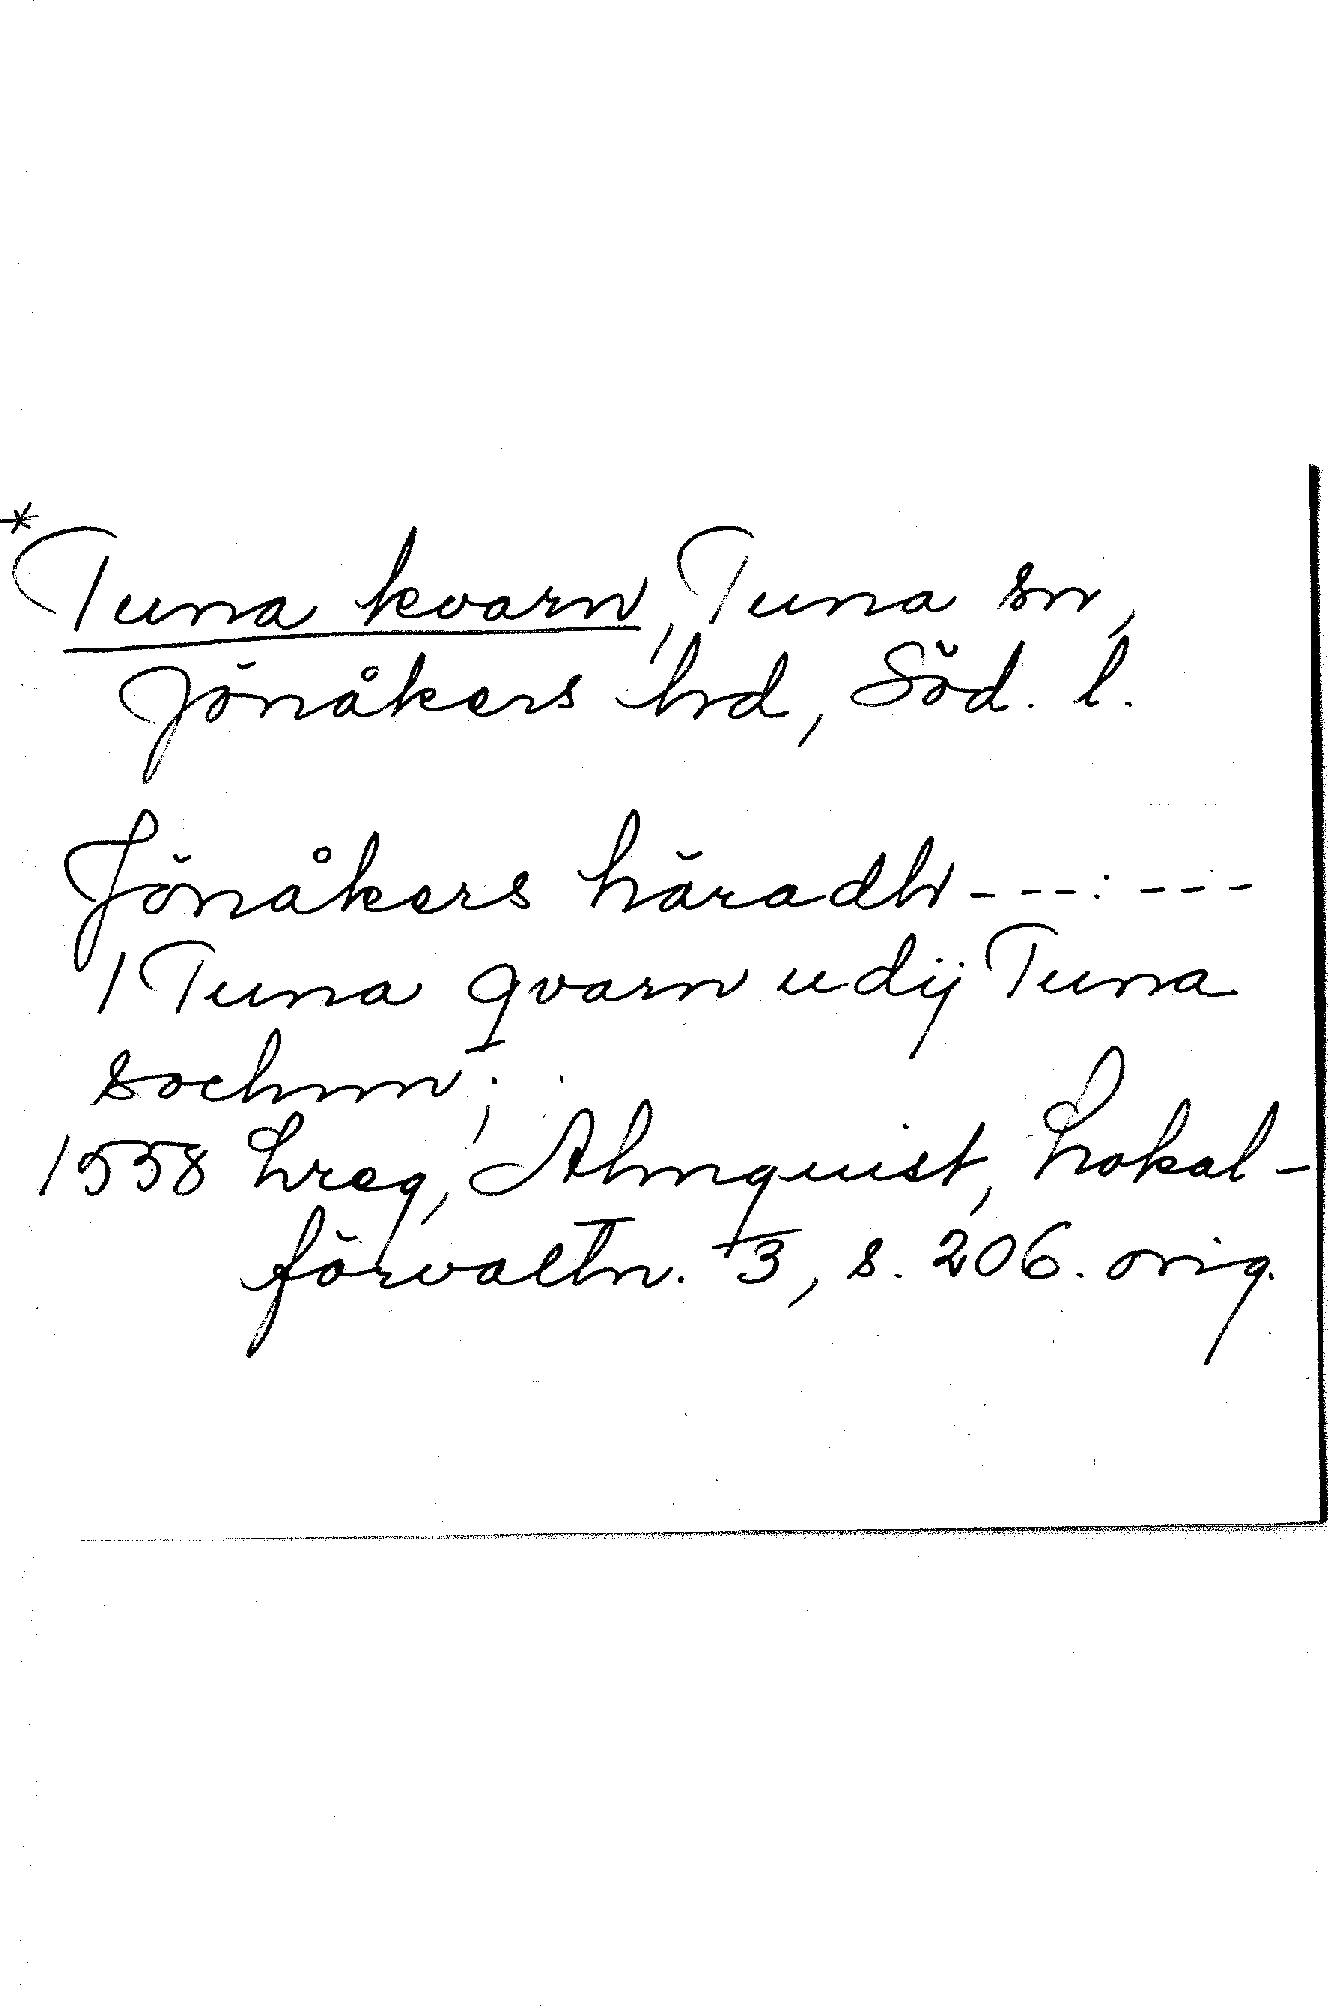 *
Tuna kvarn, Tuna sn,
Jönåkers hrd, Söd. l.
Jönåkers häradh ---:---
1 Tuna qvarn udij Tuna
sochnn;
1558 Lreg, Almquist, Lokal-
förvaltn. 3, s. 206. orig.